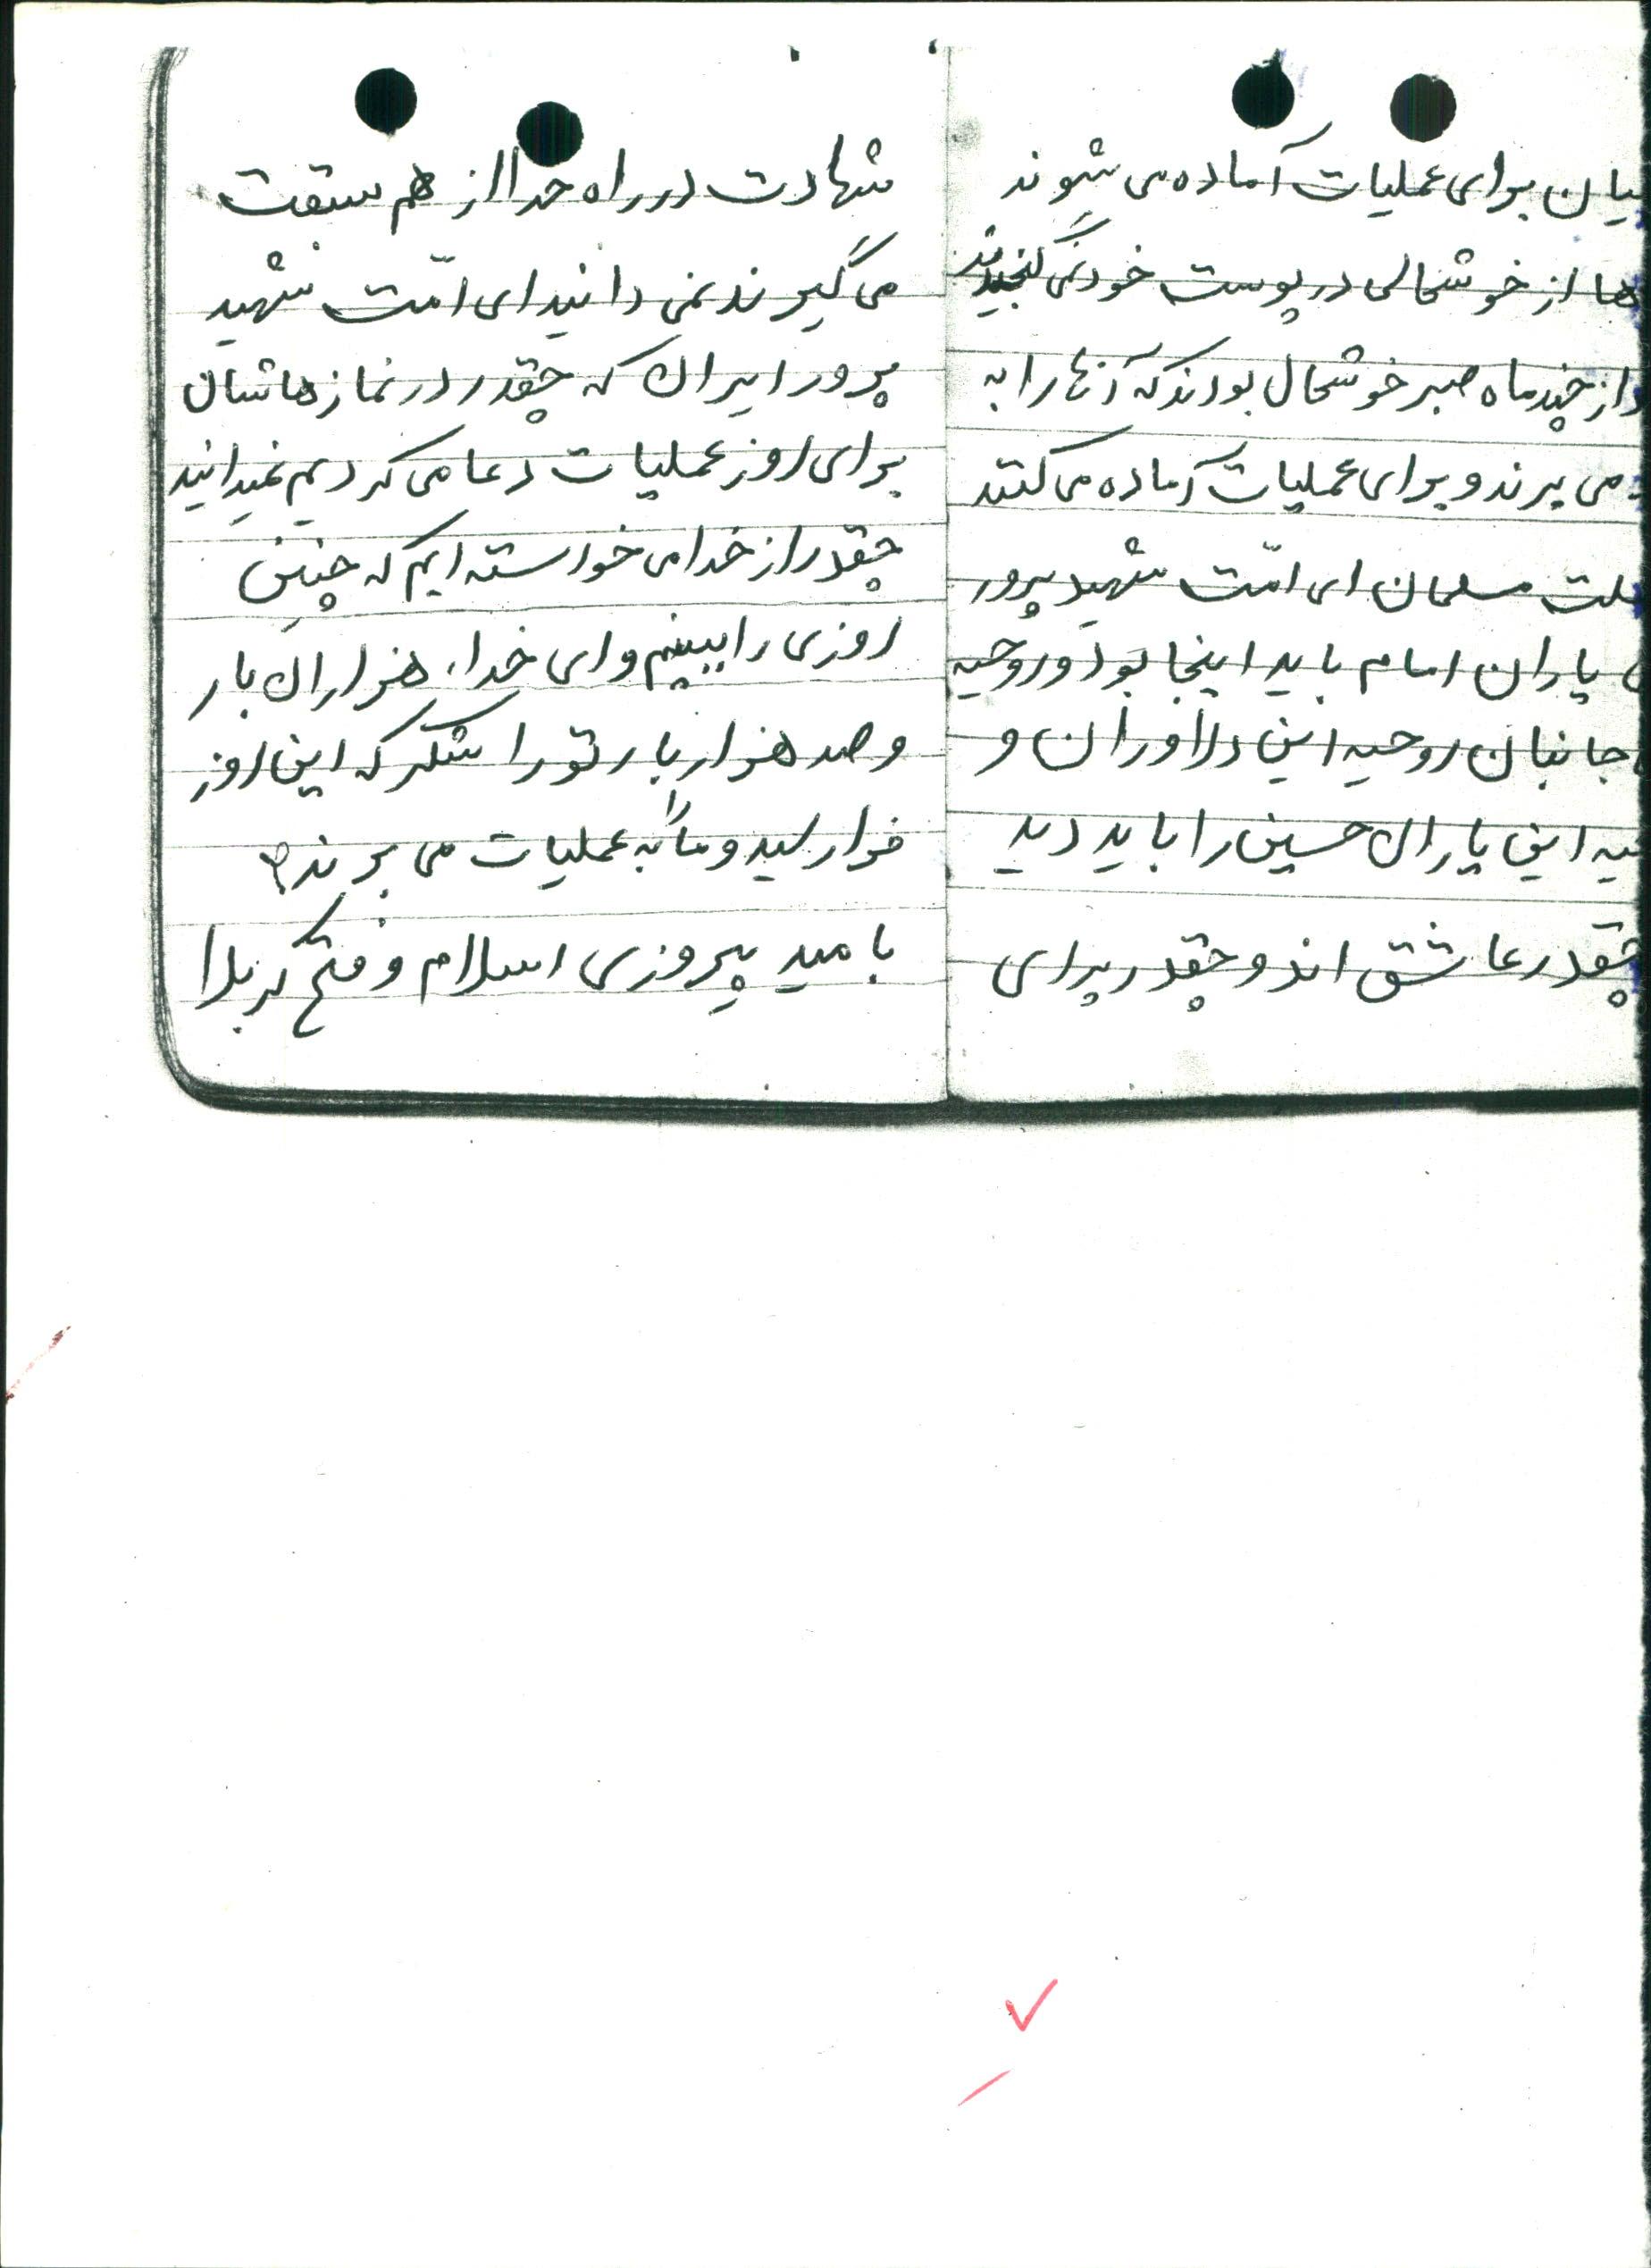 یان برای عملیات آماده می شوند
ها از خوشحالی در پوست خود نمی گنجیدند
از چند ماه صبر خوشحال بودند که آنها را به
می برند و برای عملیات آماده می کنند
ملت مسلمان ای امّت شهید پرور
یاران امام باید اینجا بود و روحیه
جانبان روحیه این دلاوران و
یه این یاران حسین را باید دید
چقدر عاشق اند و چقدر برای
شهادت در راه خدا از هم سبقت
می گیرند نمی دانید ای امّت شهید
پرور ایران که چقدر در نمازهاشان
برای روز عملیات دعا می کردیم نمیدانید
چقدر از خدا می خواسته ایم که چنین
روزی را ببینیم و ای خدا، هزاران بار
و صد هزار بار تو را شکر که این روز
فرا رسید و ما را به عملیات می برند
بامید پیروزی اسلام و فتح کربلا